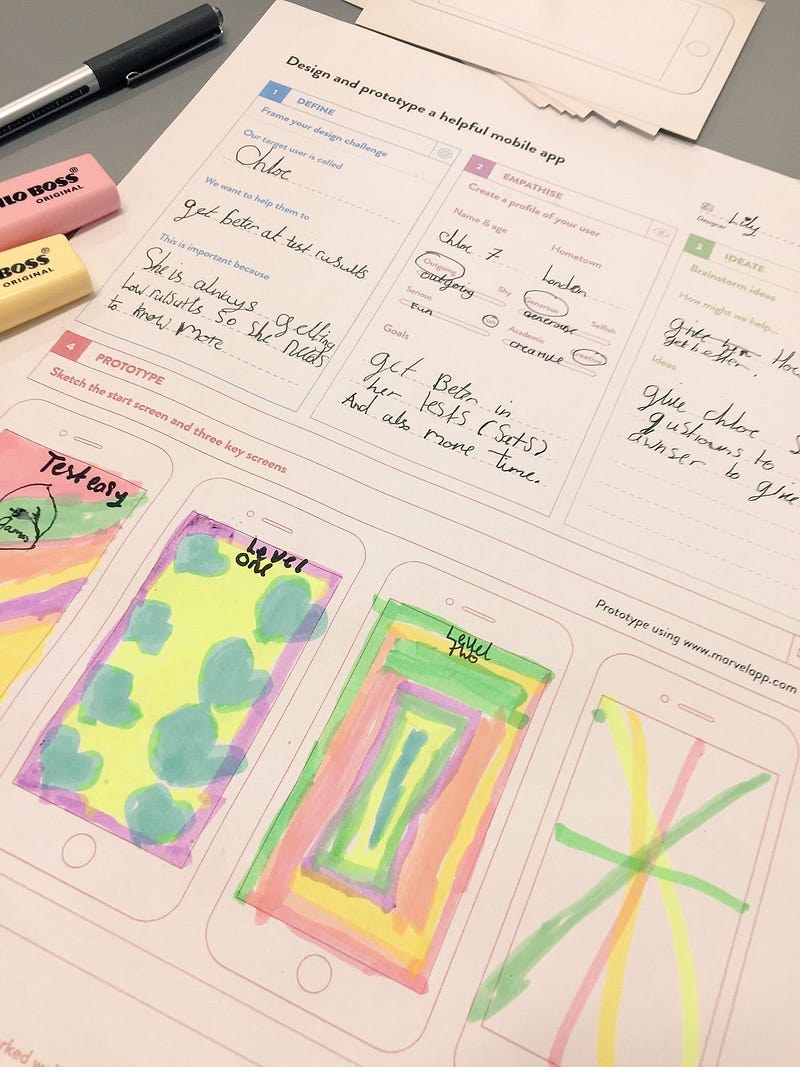 Design and prototype a helpful mobile app
1 DEFINE
Frame your design challenge
Our target user is called
Chloe
We want to help them to
get beter at test rusults
This is important because
She is always getting
low rusults so she needs
to know more
2 EMPATHISE
Create a profile of your user
Name & age
Hometown
chloe 7
London
Outgoing
Shy
Generous
Selfish
outgoing
generouse
Serious
Fun
Academic
Creative
Fun
creative
Goals
get Beter in
her tests (Sats)
And also more time.
Designer
Lily
3 IDEATE
Brainstorm ideas
How might we help...
give
get better.
Ideas
give chloe
qustiowns to
awnser to give
4 PROTOTYPE
Sketch the start screen and three key screens
Prototype using www.marvelapp.com
Test easy
James
Level
one
Level
two
BOSS
ORIGINAL
BOSS
ORIGINAL